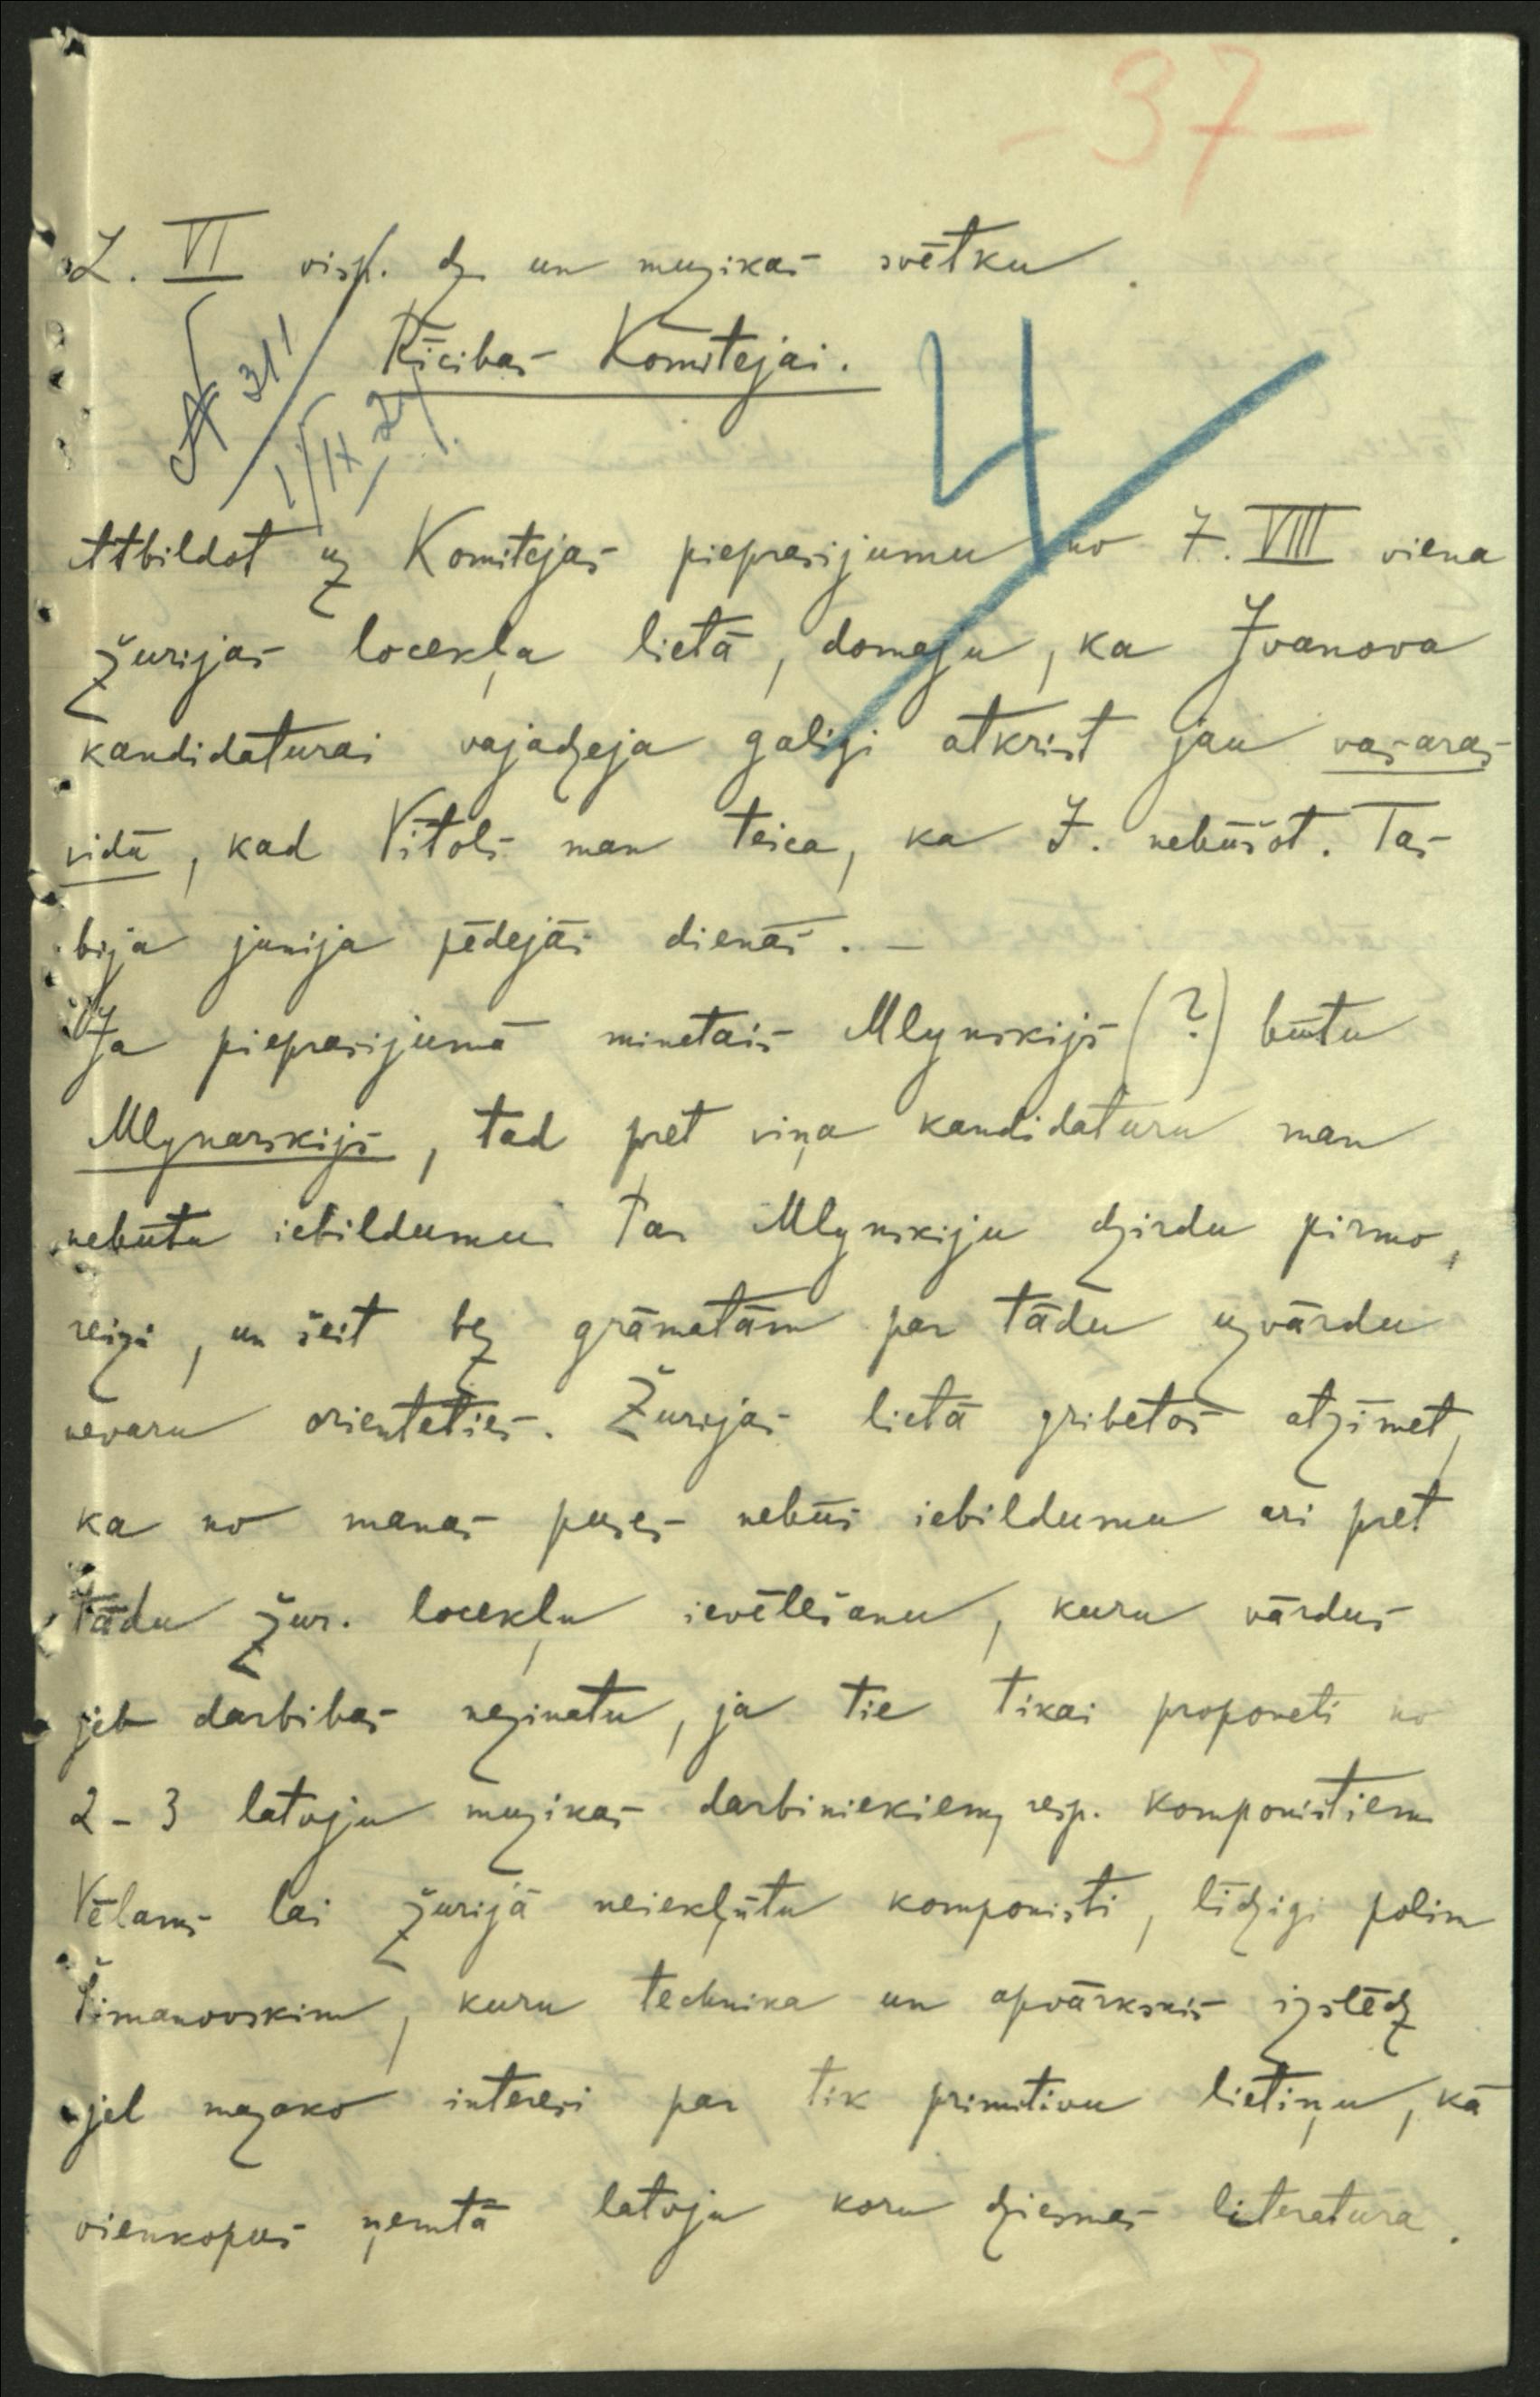 - 37 -
L. VI visp. dz. un muzikas svētku
Rīcibas Komitejai.
№ 311
1/IX 24.
4
Atbildot uz Komitejas pieprasijumu no 7. VIII viena
žurijas locekļa lietā, domaju, ka Ivanova
kandidaturai vajadzeja galigi atkrist jau vasaras
vidū, kad Vītols man teica, ka I. nebūšot. Tas
bija junija pēdejās dienās. —
Ja pieprasijumā minetais Mlynskijs (?) būtu
Mlynarskijs, tad pret viņa kandidaturu man
nebūtu iebildumu. Par Mlynskiju dzirdu pirmo
reizi, un šeit bez grāmatām par tādu uzvārdu
nevaru orienteties. Žurijas lietā gribetos atzimet,
ka no manas puses nebūs iebildumu ari pret
tādu žur. locekļu ievēlešanu, kuru vārdus
jeb darbibas nezinatu, ja tie tikai proponeti no
2 - 3 latvju muzikas darbiniekiem, resp. komponistiem
Vēlams lai žurijā neiekļūtu komponisti, līdzigi polim
Šimanovskim, kuru technika un apvārksnis izslēdz
jel mazako interesi par tik primitivu lietiņu, kā
vienkopus ņemtā latvju koru dziesmas literatura.